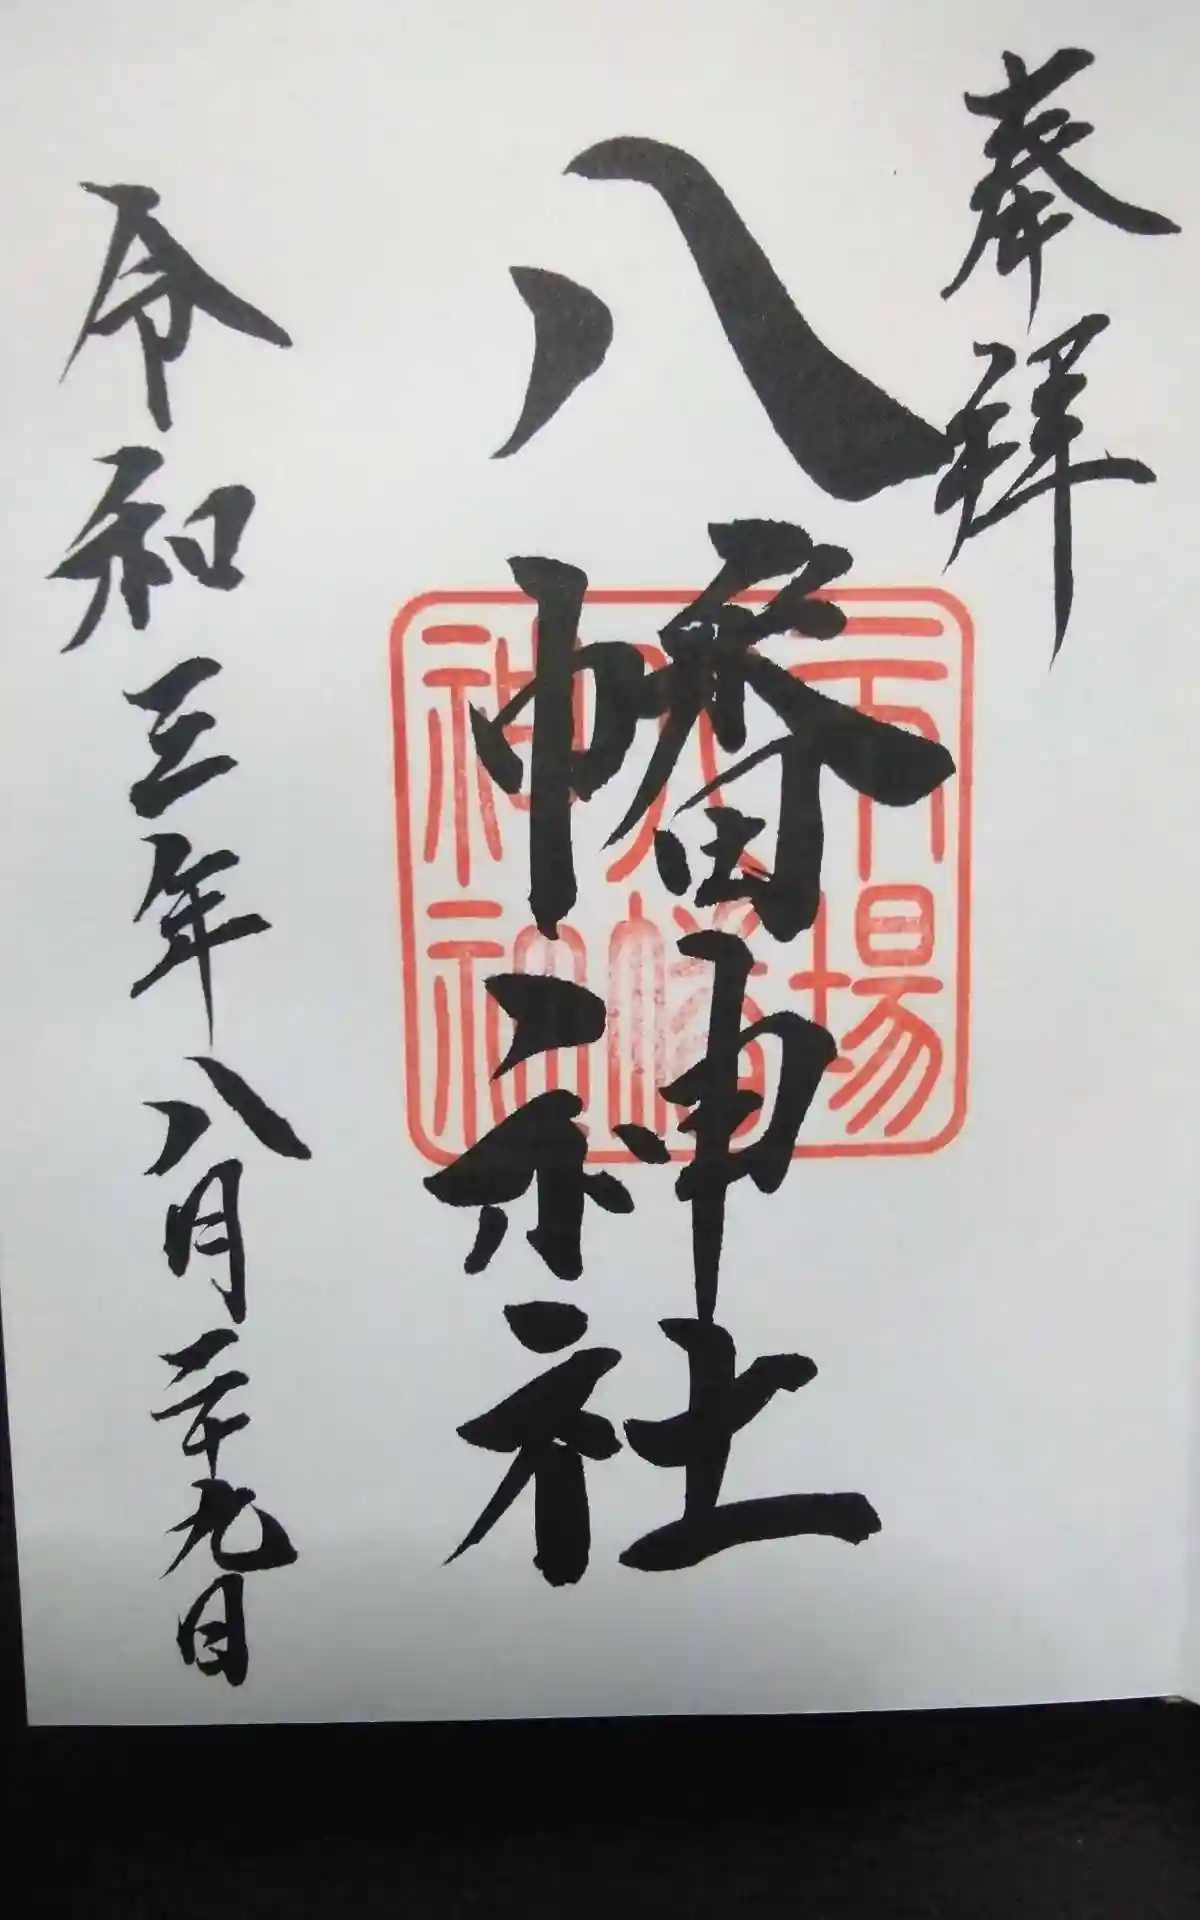 奉拝
八幡神社
令和三年八月二十九日
市場
八幡
神